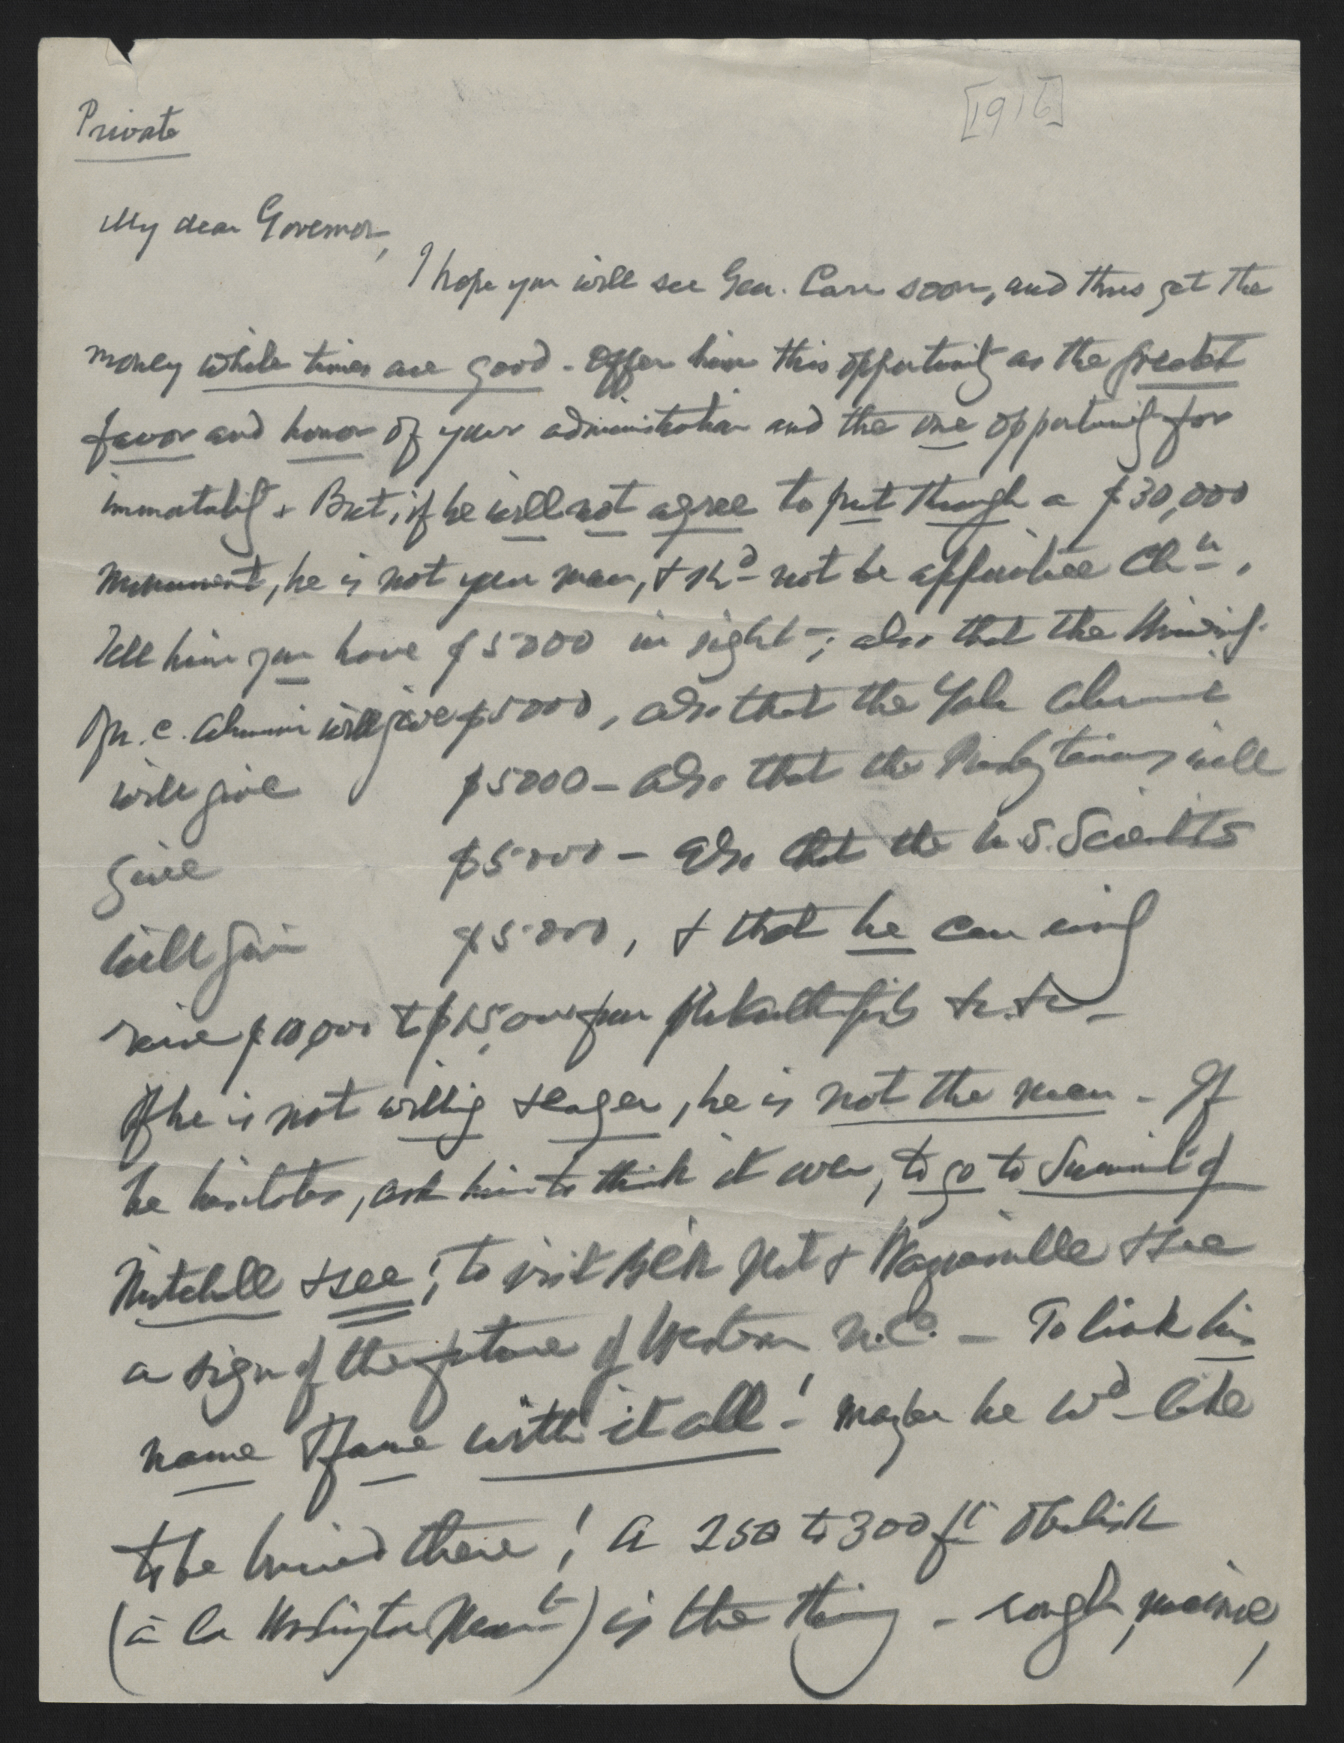 Private
[1916]
My dear Governor,
I hope you will see Gen. Carr soon, and thus get the
money while times are good - Offer him this opportunity as the greatest
favor and honor of your administration and the one opportunity for
immortality + But, if he will not agree to put through a $30,000
Monument, he is not your man, + shd not be appointee Chn.
Tell him you have $5000 in sight -; also that the Univ
Of N.C. Alumni will give $5000, also that the Yale Alumni
will give $5000 - also that the Presbyterians will
give $5000 - also that the U.S. Scientists
will give $5000, + that he can easily
raise $10,000 to $15,000 from &c. &c -
If he is not willing + eager, he is not the man - If
he hesitates, ask him to think it over, to go to Summit of
Mitchell + see; to visit Blk Mt + Waynesville + see
a sign of the future of Western N.C. - To link his
name + fame with it all! - Maybe he wd like
to be buried there! A 250 to 300 ft Obelisk
(à la Washington Monmt) is the thing - rough,